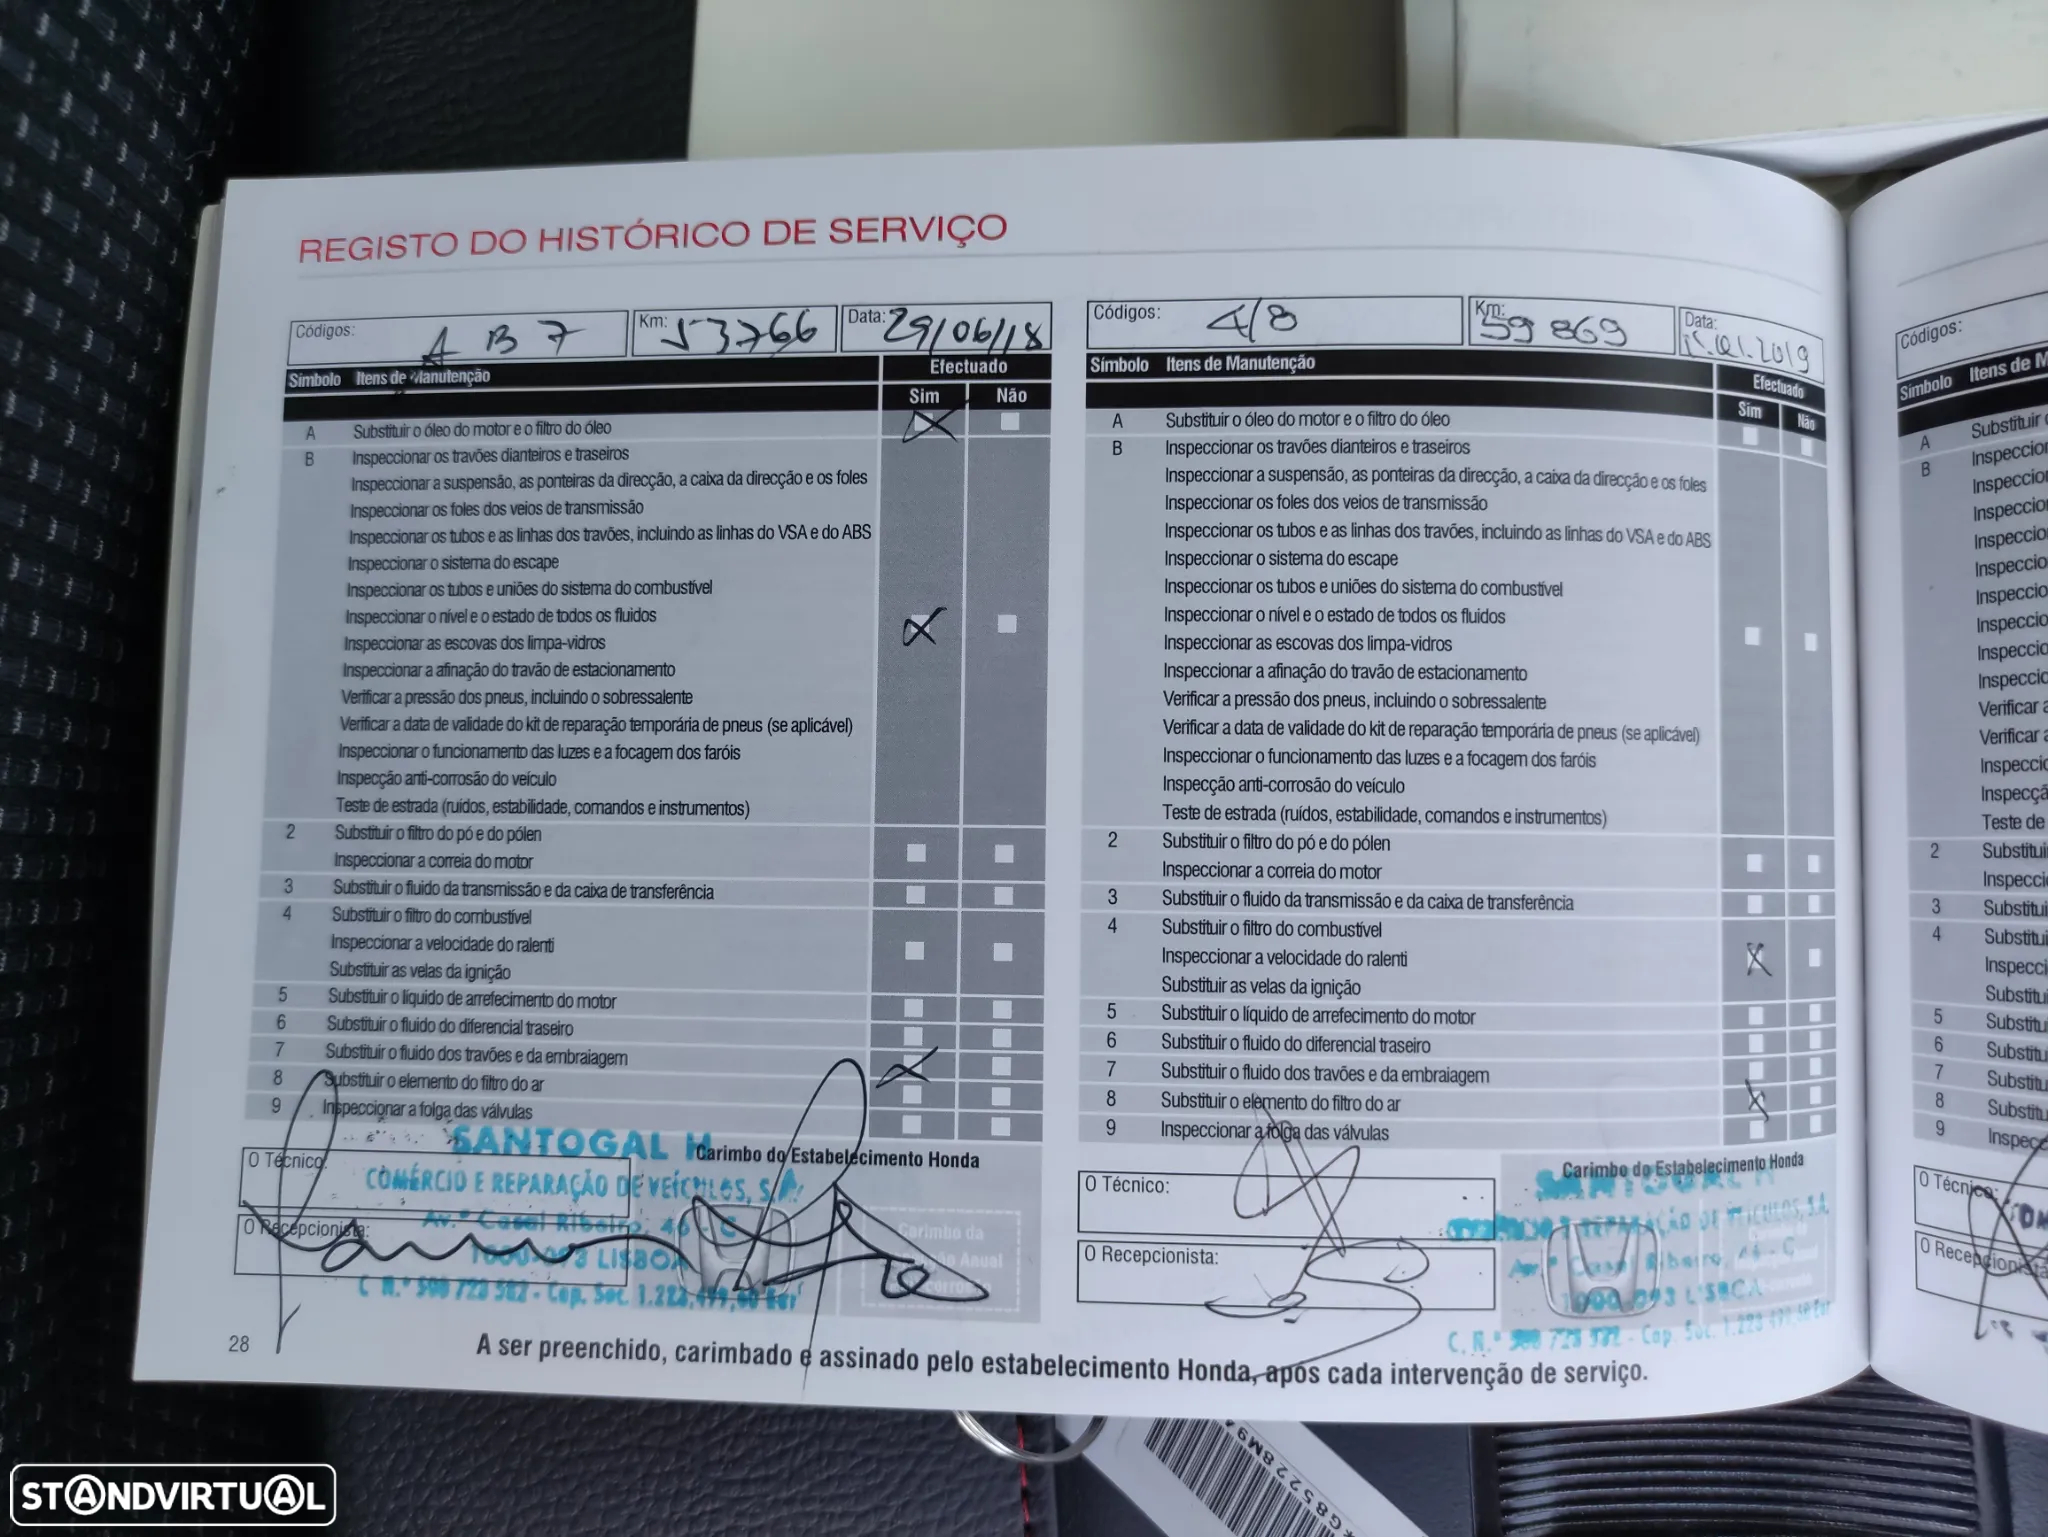 REGISTO DO HISTÓRICO DE SERVIÇO
Códigos: A B 7 Km: 53766 Data: 29/06/18
Símbolo Itens de Manutenção Efectuado
Sim Não
A Substituir o óleo do motor e o filtro do óleo
B Inspeccionar os travões dianteiros e traseiros
Inspeccionar a suspensão, as ponteiras da direcção, a caixa da direcção e os foles
Inspeccionar os foles dos veios de transmissão
Inspeccionar os tubos e as linhas dos travões, incluindo as linhas do VSA e do ABS
Inspeccionar o sistema do escape
Inspeccionar os tubos e uniões do sistema do combustível
Inspeccionar o nível e o estado de todos os fluidos
Inspeccionar as escovas dos limpa-vidros
Inspeccionar a afinação do travão de estacionamento
Verificar a pressão dos pneus, incluindo o sobressalente
Verificar a data de validade do kit de reparação temporária de pneus (se aplicável)
Inspeccionar o funcionamento das luzes e a focagem dos faróis
Inspecção anti-corrosão do veículo
Teste de estrada (ruídos, estabilidade, comandos e instrumentos)
2 Substituir o filtro do pó e do pólen
Inspeccionar a correia do motor
3 Substituir o fluido da transmissão e da caixa de transferência
4 Substituir o filtro do combustível
Inspeccionar a velocidade do ralenti
Substituir as velas da ignição
5 Substituir o líquido de arrefecimento do motor
6 Substituir o fluido do diferencial traseiro
7 Substituir o fluido dos travões e da embraiagem
8 Substituir o elemento do filtro do ar
9 Inspeccionar a folga das válvulas
SANTOGAL H
Carimbo do Estabelecimento Honda
O Técnico:
COMÉRCIO E REPARAÇÃO DE VEÍCULOS, S.A.
Av.ª Casal Ribeiro, 46 - C
O Recepcionista:
Carimbo da
Anual
1000-093 LISBOA
C. N.º 500 728 582 - Cap. Soc. 1.223.499,60 Eur
28
Códigos: 4/8 Km: 59869 Data: 2019
Símbolo Itens de Manutenção Efectuado
Sim Não
A Substituir o óleo do motor e o filtro do óleo
B Inspeccionar os travões dianteiros e traseiros
Inspeccionar a suspensão, as ponteiras da direcção, a caixa da direcção e os foles
Inspeccionar os foles dos veios de transmissão
Inspeccionar os tubos e as linhas dos travões, incluindo as linhas do VSA e do ABS
Inspeccionar o sistema do escape
Inspeccionar os tubos e uniões do sistema do combustível
Inspeccionar o nível e o estado de todos os fluidos
Inspeccionar as escovas dos limpa-vidros
Inspeccionar a afinação do travão de estacionamento
Verificar a pressão dos pneus, incluindo o sobressalente
Verificar a data de validade do kit de reparação temporária de pneus (se aplicável)
Inspeccionar o funcionamento das luzes e a focagem dos faróis
Inspecção anti-corrosão do veículo
Teste de estrada (ruídos, estabilidade, comandos e instrumentos)
2 Substituir o filtro do pó e do pólen
Inspeccionar a correia do motor
3 Substituir o fluido da transmissão e da caixa de transferência
4 Substituir o filtro do combustível
Inspeccionar a velocidade do ralenti
Substituir as velas da ignição
5 Substituir o líquido de arrefecimento do motor
6 Substituir o fluido do diferencial traseiro
7 Substituir o fluido dos travões e da embraiagem
8 Substituir o elemento do filtro do ar
9 Inspeccionar a folga das válvulas
Carimbo do Estabelecimento Honda
O Técnico:
REPARAÇÃO DE VEÍCULOS, S.A.
Ribeiro, 46 - C
O Recepcionista:
1000-093 LISBOA
A ser preenchido, carimbado e assinado pelo estabelecimento Honda, após cada intervenção de serviço.
Códigos:
Símbolo Itens de M
A Substituir
B Inspeccion
Inspeccion
Inspeccion
Inspeccio
Inspeccio
Inspeccio
Inspeccio
Inspeccio
Inspeccio
Verificar a
Verificar a
Inspecci
Inspecçã
Teste de
2 Substitui
Inspecci
3 Substitu
4 Substitu
Inspecci
Substitu
5 Substitu
6 Substitu
7 Substitu
8 Substitu
9 Inspec
O Técnico:
O Recepcionista
*G85228M9
STANDVIRTUAL